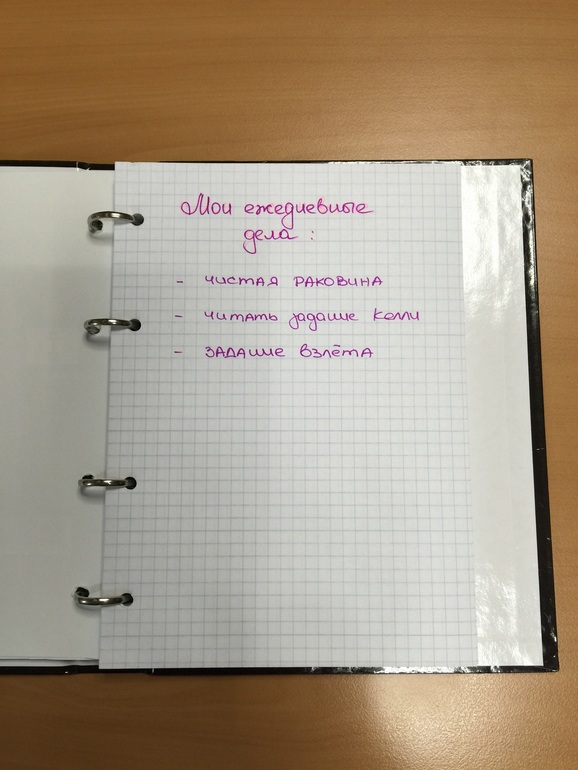 Мои ежедневные
дела :
- чистая раковина
- читать задание Келли
- задание взлёта